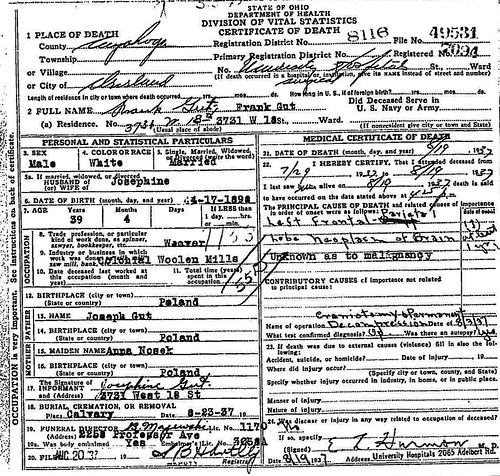 STATE OF OHIO
DEPARTMENT OF HEALTH
DIVISION OF VITAL STATISTICS
CERTIFICATE OF DEATH
1 PLACE OF DEATH
County Cuyahoga Registration District No. 8116 File No. 49531
Township Primary Registration District No. Registered No.
or Village No. Hospital St., Ward
(If death occurred in a hospital or institution, give its NAME instead of street and number)
or City of Cleveland
Length of residence in city or town where death occurred yrs. mos. ds. How long in U.S., if of foreign birth? yrs. mos. ds.
2 FULL NAME Frank Gut Frank Gut Did Deceased Serve in U. S. Navy or Army
(a) Residence. No. 3731 W 18th 3731 W 18 St., Ward
(Usual place of abode) (If nonresident give city or town and State)
PERSONAL AND STATISTICAL PARTICULARS
3. SEX Male
4. COLOR OR RACE White
5. Single, Married, Widowed, or Divorced (write the word) Married
5a. If married, widowed, or divorced
HUSBAND of
(or) WIFE of Josephine
6. DATE OF BIRTH (month, day, and year) 4-17-1898
7. AGE Years 39 Months 4 Days If LESS than 1 day, hrs. or min.
8. Trade, profession, or particular kind of work done, as spinner, sawyer, bookkeeper, etc. Weaver
9. Industry or business in which work was done, as silk mill, saw mill, bank, etc. Colonial Woolen Mills
10. Date deceased last worked at this occupation (month and year)
11. Total time (years) spent in this occupation
12. BIRTHPLACE (city or town)
(State or country) Poland
FATHER
13. NAME Joseph Gut
14. BIRTHPLACE (city or town)
(State or country) Poland
MOTHER
15. MAIDEN NAME Anna Nosek
16. BIRTHPLACE (city or town)
(State or country) Poland
17. The Signature of INFORMANT Josephine Gut
and (Address) 3731 West 18 St
18. BURIAL, CREMATION, OR REMOVAL
Place Calvary Date 8-23-37 19
19. FUNERAL DIRECTOR Lic. No. 1170
(Address) 2258 Professor Ave
19a. Was body embalmed Yes Embalmer's Lic. No.
20. FILED AUG 20 '37
MEDICAL CERTIFICATE OF DEATH
21. DATE OF DEATH (month, day, and year) 8/19 1937
22. I HEREBY CERTIFY, That I attended deceased from
7/29 1937 to 8/19 1937
I last saw alive on 8/19 1937 death is said
to have occurred on the date stated above at
The PRINCIPAL CAUSE OF DEATH and related causes of importance in order of onset were as follows:
Left Frontal-Parietal
lobe Neoplasm of Brain
Unknown as to malignancy
CONTRIBUTORY CAUSES of importance not related to principal cause:
Name of operation Craniotomy Decompression Date of 8/3/37
What test confirmed diagnosis? Was there an autopsy?
23. If death was due to external causes (violence) fill in also the following:
Accident, suicide, or homicide? Date of injury 19
Where did injury occur?
(Specify city or town, county, and State)
Specify whether injury occurred in industry, in home, or in public place.
Manner of injury
Nature of injury
24. Was disease or injury in any way related to occupation of deceased? No
If so, specify
(Signed) E L Harmon M. D.
Date 8/19 1937 Address University Hospitals 2065 Adelbert Rd.